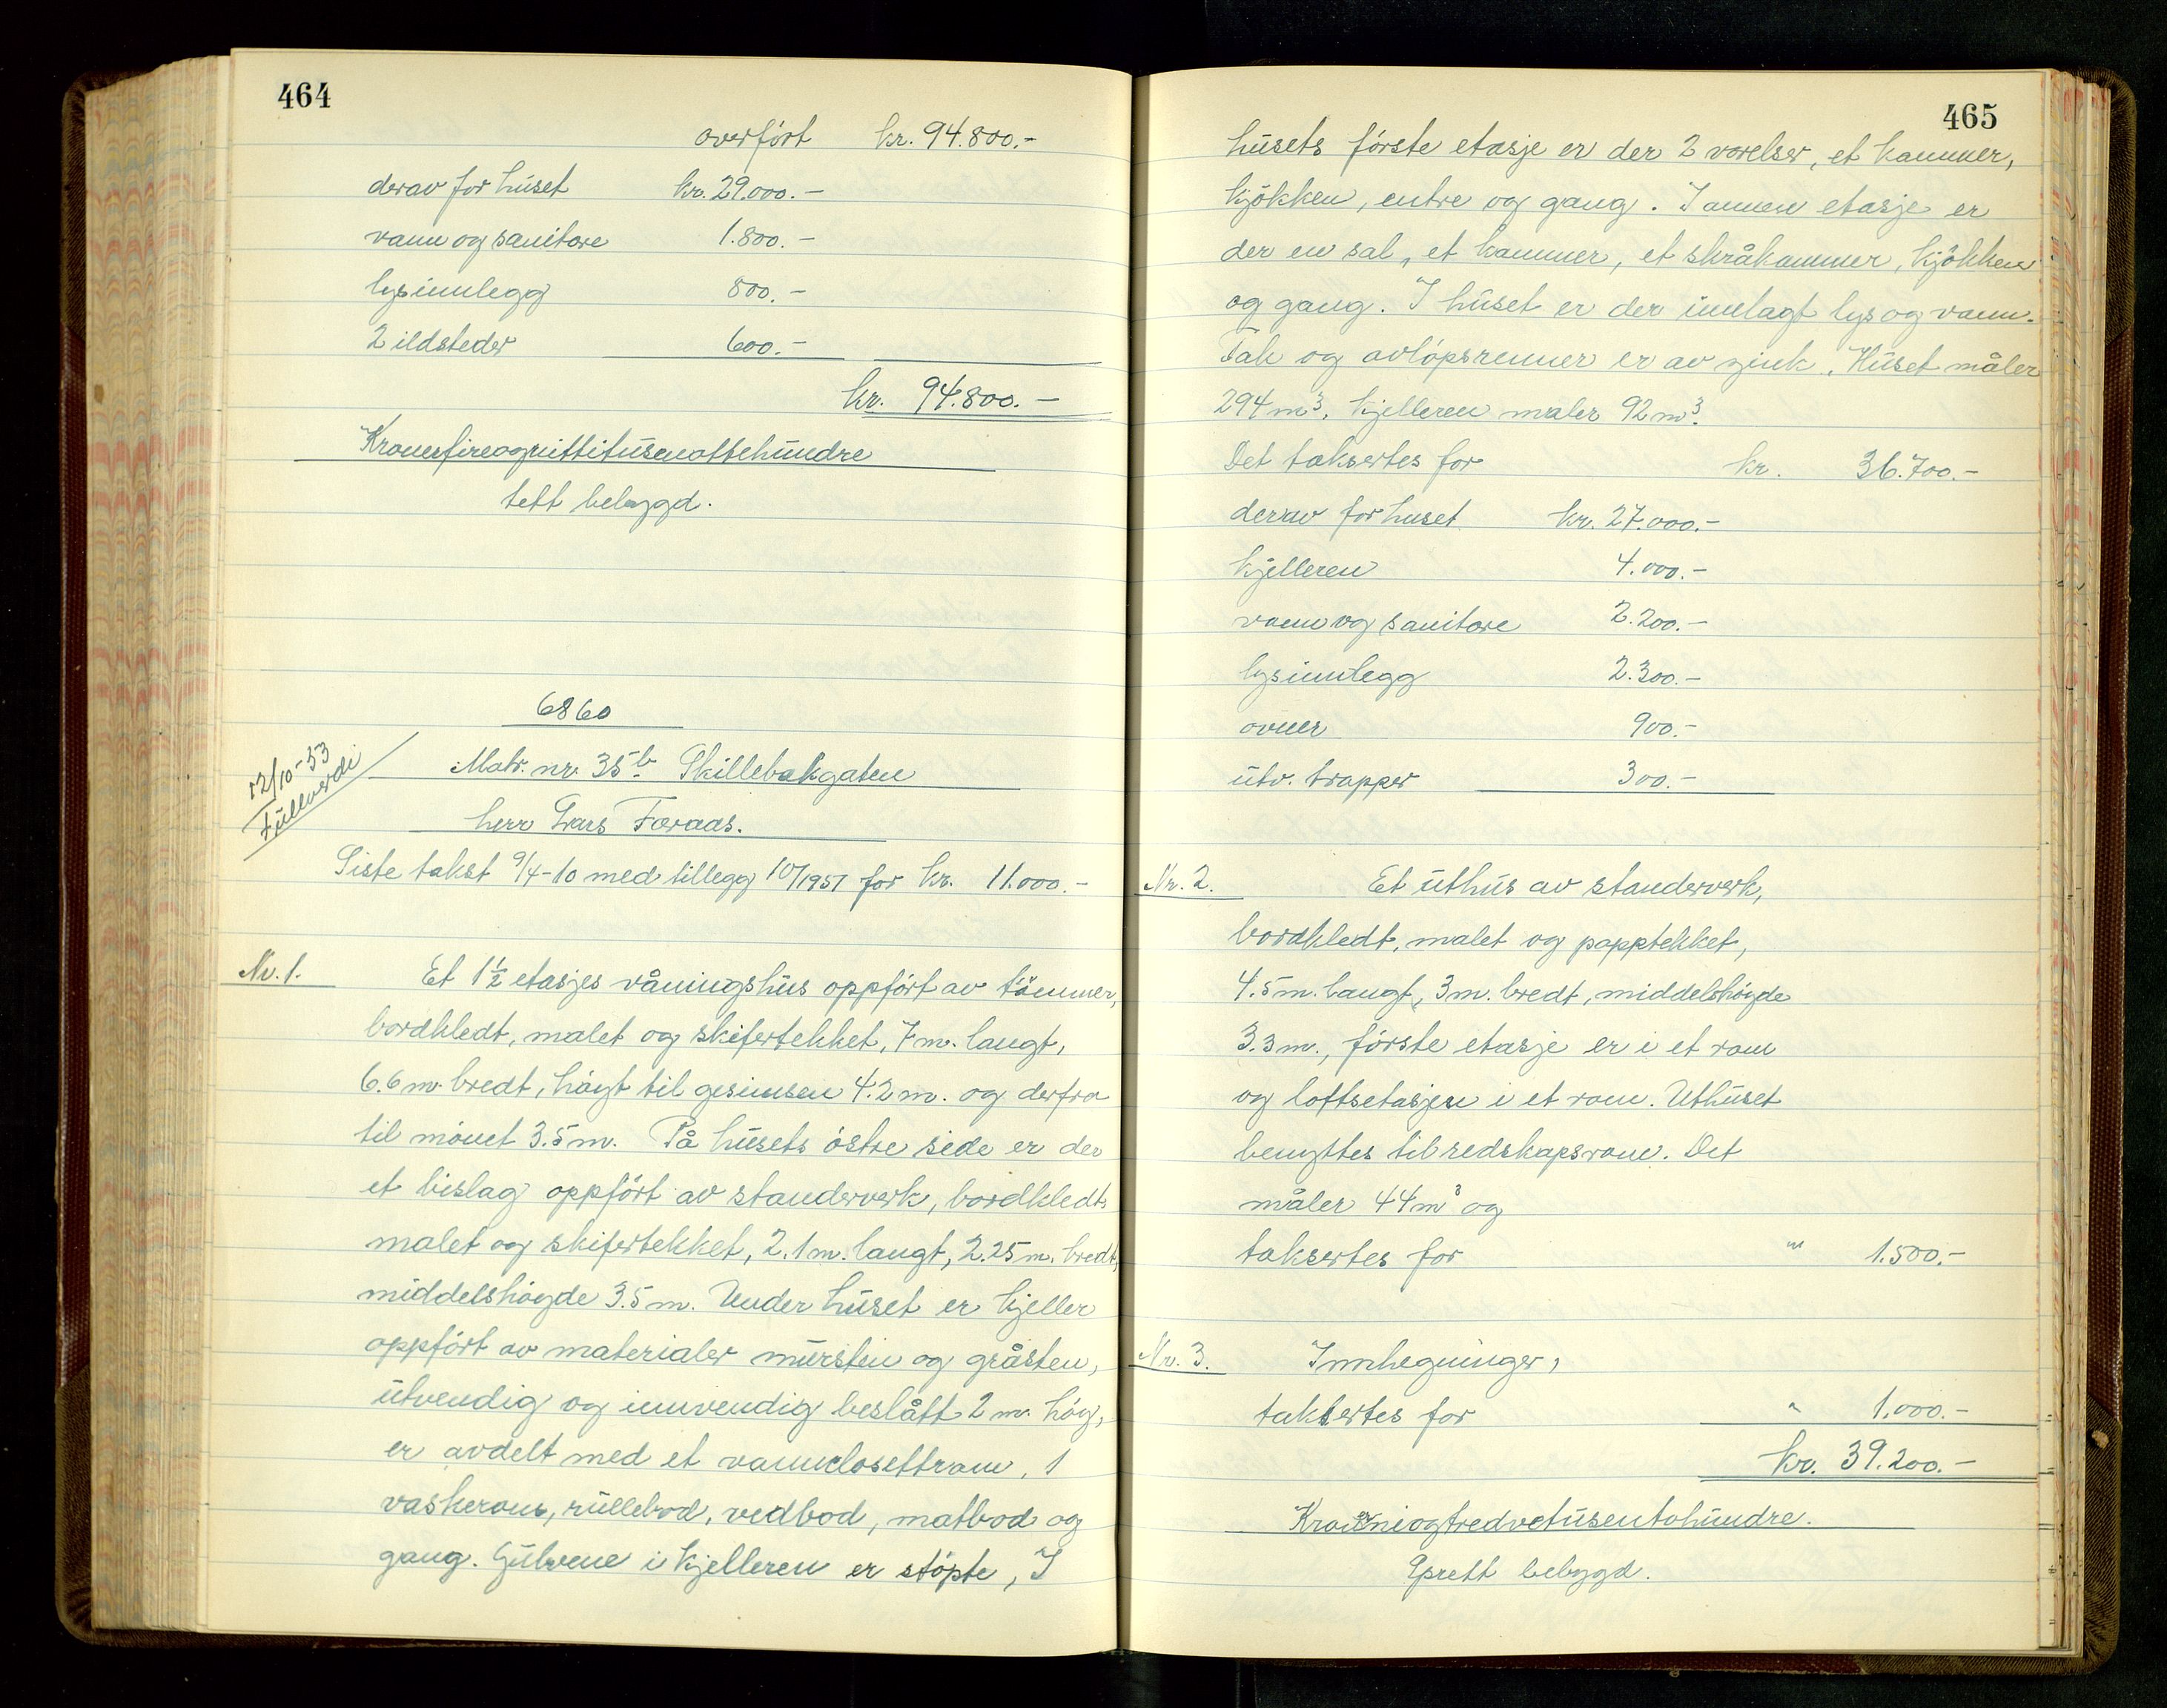 464
overført kr. 94.800.-
derav for huset kr. 29.000.-
vann og sanitære 1.800.-
lysinnlegg 800.-
2 ildsteder 600.-
kr. 94.800.-
Kronerfireognittitusenottehundre
tett bebygd.
6860
12/10-53
Fullverdi
Matr. nr. 35b. Skillebakgaten
herr Lars Foraas.
Siste takst 9/4-10 med tillegg 10/1951 for kr. 11.000.-
Nr. 1. Et 1½ etasjes våningshus oppført av tømmer,
bordkledt, malet og skifertekket, 7 m. langt,
6.6 m. bredt, høgt til gesimsen 4.2 m. og derfra
til mønet 3.5 m. På husets østre side er der
et bislag oppført av standerverk, bordkledt,
malet og skifertekket, 2.1 m. langt, 2.25 m. bredt,
middelshøgde 3.5 m. Under huset er kjeller
oppført av materialer mursten og gråsten,
utvendig og innvendig beslått 2 m. høg,
er avdelt med et vannclosettrom, 1
vaskerom, rullebod, vedbod, matbod og
gang. Gulvene i kjelleren er støpte, I
465
husets første etasje er der 2 værelser, et kammer,
kjøkken, entre og gang. I annen etasje er
der en sal, et kammer, et skråkammer, kjøkken
og gang. I huset er der innlagt lys og vann.
Tak og avløpsrenner er av zink. Huset måler
294 m³, kjelleren måler 92 m³.
Det taksertes for kr. 36.700.-
derav for huset kr. 27.000.-
kjelleren 4.000.-
vann og sanitære 2.200.-
lysinnlegg 2.300.-
ovner 900.-
utv. trapper 300.-
Nr. 2. Et uthus av standerverk,
bordkledt, malet og papptekket,
4.5 m. langt, 3 m. bredt, middelshøgde
3.3 m., første etasje er i et rom
og loftsetasjen i et rom. Uthuset
benyttes til redskapsrom. Det
måler 44 m³ og
taksertes for " 1.500.-
Nr. 3. Innhegninger,
taksertes for " 1.000.-
kr. 39.200.-
Kronerniogtredvetusentohundre.
Sprett bebygd.